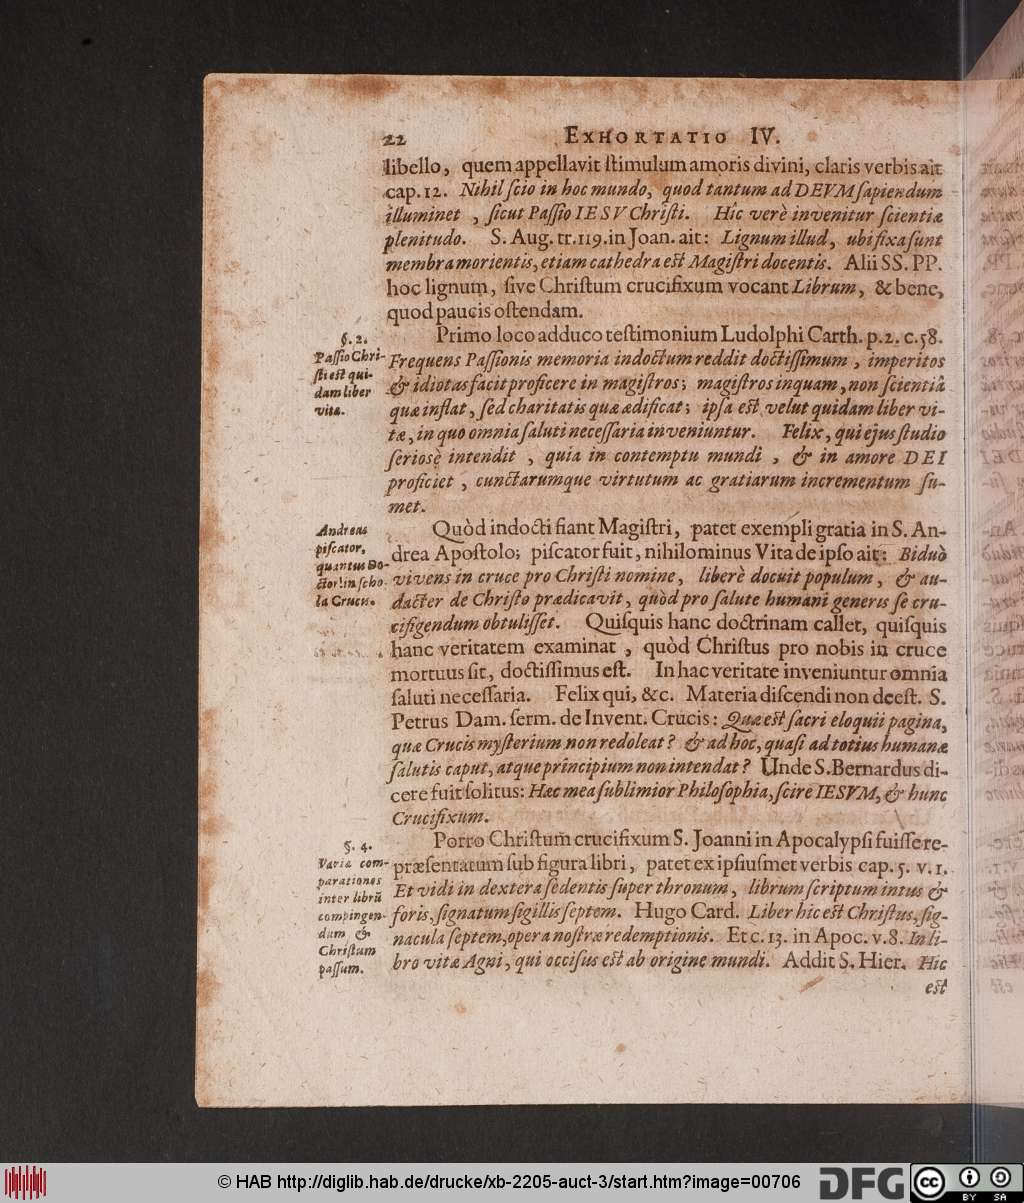 22 EXHORTATIO IV.
libello, quem appellavit ſtimulum amoris divini, claris verbis ait
cap. 12. Nihil ſcio in hoc mundo, quod tantum ad DEVM ſapiendum
illuminet , ſicut Paſſio IESV Chriſti. Hîc verè invenitur ſcientiæ
plenitudo. S. Aug. tr. 119. in Joan. ait: Lignum illud, ubi fixa ſunt
membra morientis, etiam cathedra eſt Magiſtri docentis. Alii SS. PP.
hoc lignum, ſive Chriſtum crucifixum vocant Librum, & bene,
quod paucis oſtendam.
§. 2.
Paſſio Chri-
ſti eſt qui-
dam liber
vitæ.
Primo loco adduco teſtimonium Ludolphi Carth. p. 2. c. 58.
Frequens Paſſionis memoria indoctum reddit doctiſſimum , imperitos
& idiotas facit proficere in magiſtros; magiſtros inquam, non ſcientiâ
quæ inflat, ſed charitatis quæ ædificat; ipſa eſt velut quidam liber vi-
tæ, in quo omnia ſaluti neceſſaria inveniuntur. Felix, qui ejus ſtudio
ſeriosè intendit , quia in contemptu mundi , & in amore DEI
proficiet , cunctarumque virtutum ac gratiarum incrementum ſu-
met.
Andreas
piſcator,
quantus Do-
ctor in ſcho-
la Crucis.
Quòd indocti fiant Magiſtri, patet exempli gratia in S. An-
drea Apoſtolo; piſcator fuit, nihilominus Vita de ipſo ait: Biduò
vivens in cruce pro Chriſti nomine, liberè docuit populum, & au-
dacter de Chriſto prædicavit, quòd pro ſalute humani generis ſe cru-
cifigendum obtuliſſet. Quiſquis hanc doctrinam callet, quiſquis
hanc veritatem examinat , quòd Chriſtus pro nobis in cruce
mortuus ſit, doctiſſimus eſt. In hac veritate inveniuntur omnia
ſaluti neceſſaria. Felix qui, &c. Materia diſcendi non deeſt. S.
Petrus Dam. ſerm. de Invent. Crucis: Quæ eſt ſacri eloquii pagina,
quæ Crucis myſterium non redoleat? & ad hoc, quaſi ad totius humanæ
ſalutis caput, atque principium non intendat? Unde S. Bernardus di-
cere fuit ſolitus: Hæc mea ſublimior Philoſophia, ſcire IESVM, & hunc
Crucifixum.
§. 4.
Varia com-
parationes
inter librũ
compingen-
dum &
Chriſtum
paſſum.
Porro Chriſtum crucifixum S. Joanni in Apocalypſi fuiſſe re-
præſentatum ſub figura libri, patet ex ipſiuſmet verbis cap. 5. v. 1.
Et vidi in dextera ſedentis ſuper thronum, librum ſcriptum intus &
foris, ſignatum ſigillis ſeptem. Hugo Card. Liber hic eſt Chriſtus, ſig-
nacula ſeptem, opera noſtræ redemptionis. Et c. 13. in Apoc. v. 8. In li-
bro vitæ Agni, qui occiſus eſt ab origine mundi. Addit S. Hier. Hic
eſt
© HAB http://diglib.hab.de/drucke/xb-2205-auct-3/start.htm?image=00706
DFG
cc BY SA